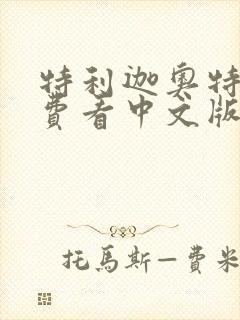 特利迦奥特
費看中文版
托馬斯—費米